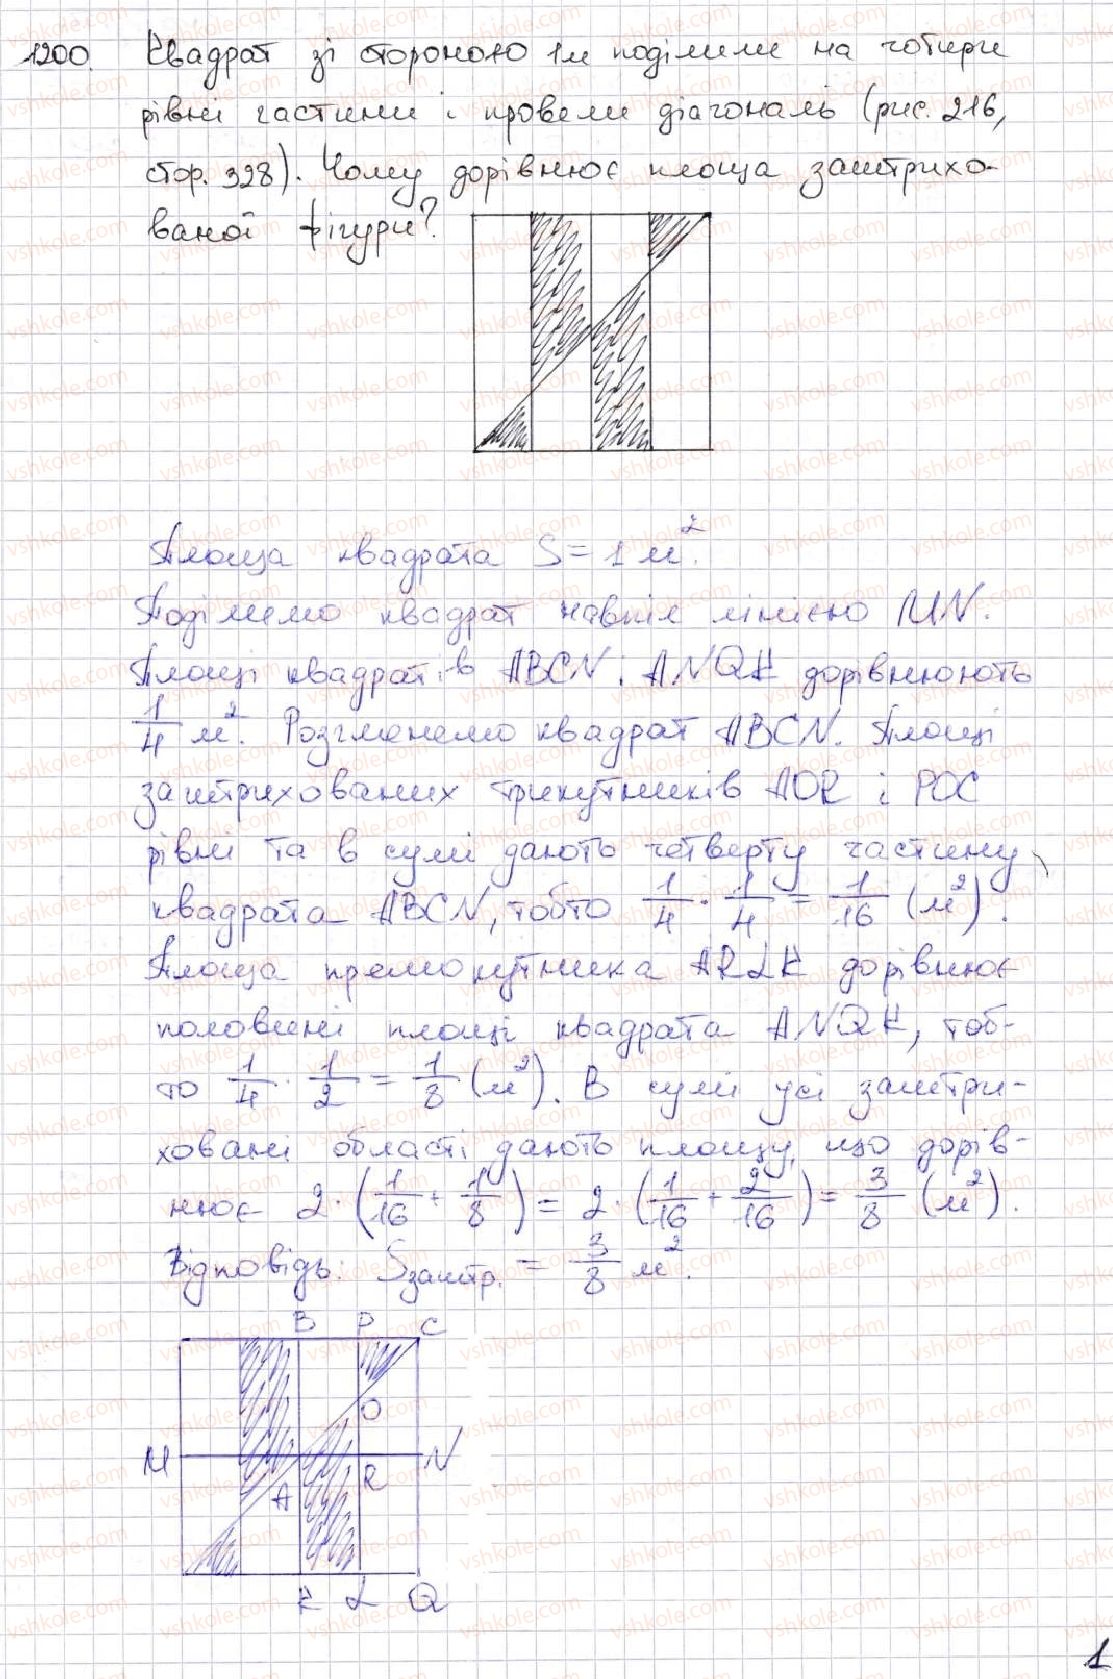 1200. Квадрат зі стороною 1м поділили на чотири
рівні частини і провели діагональ (рис. 216,
стор. 328). Чому дорівнює площа заштрихо-
ваної фігури?
Площа квадрата S = 1 м².
Поділимо квадрат навпіл лінією MN.
Площі квадратів ABCN і ANQK дорівнюють
1/4 м². Розглянемо квадрат ABCN. Площі
заштрихованих трикутників AOR і POC
рівні та в сумі дають четверту частину
квадрата ABCN, тобто 1/4 · 1/4 = 1/16 (м²).
Площа прямокутника ARLK дорівнює
половині площі квадрата ANQK, тоб-
то 1/4 · 1/2 = 1/8 (м²). В сумі усі заштри-
ховані області дають площу, що дорів-
нює 2 · (1/16 + 1/8) = 2 · (1/16 + 2/16) = 3/8 (м²).
Відповідь: Sзаштр. = 3/8 м².
B P C
O
M N
A R
K L Q
1
vshkole.com